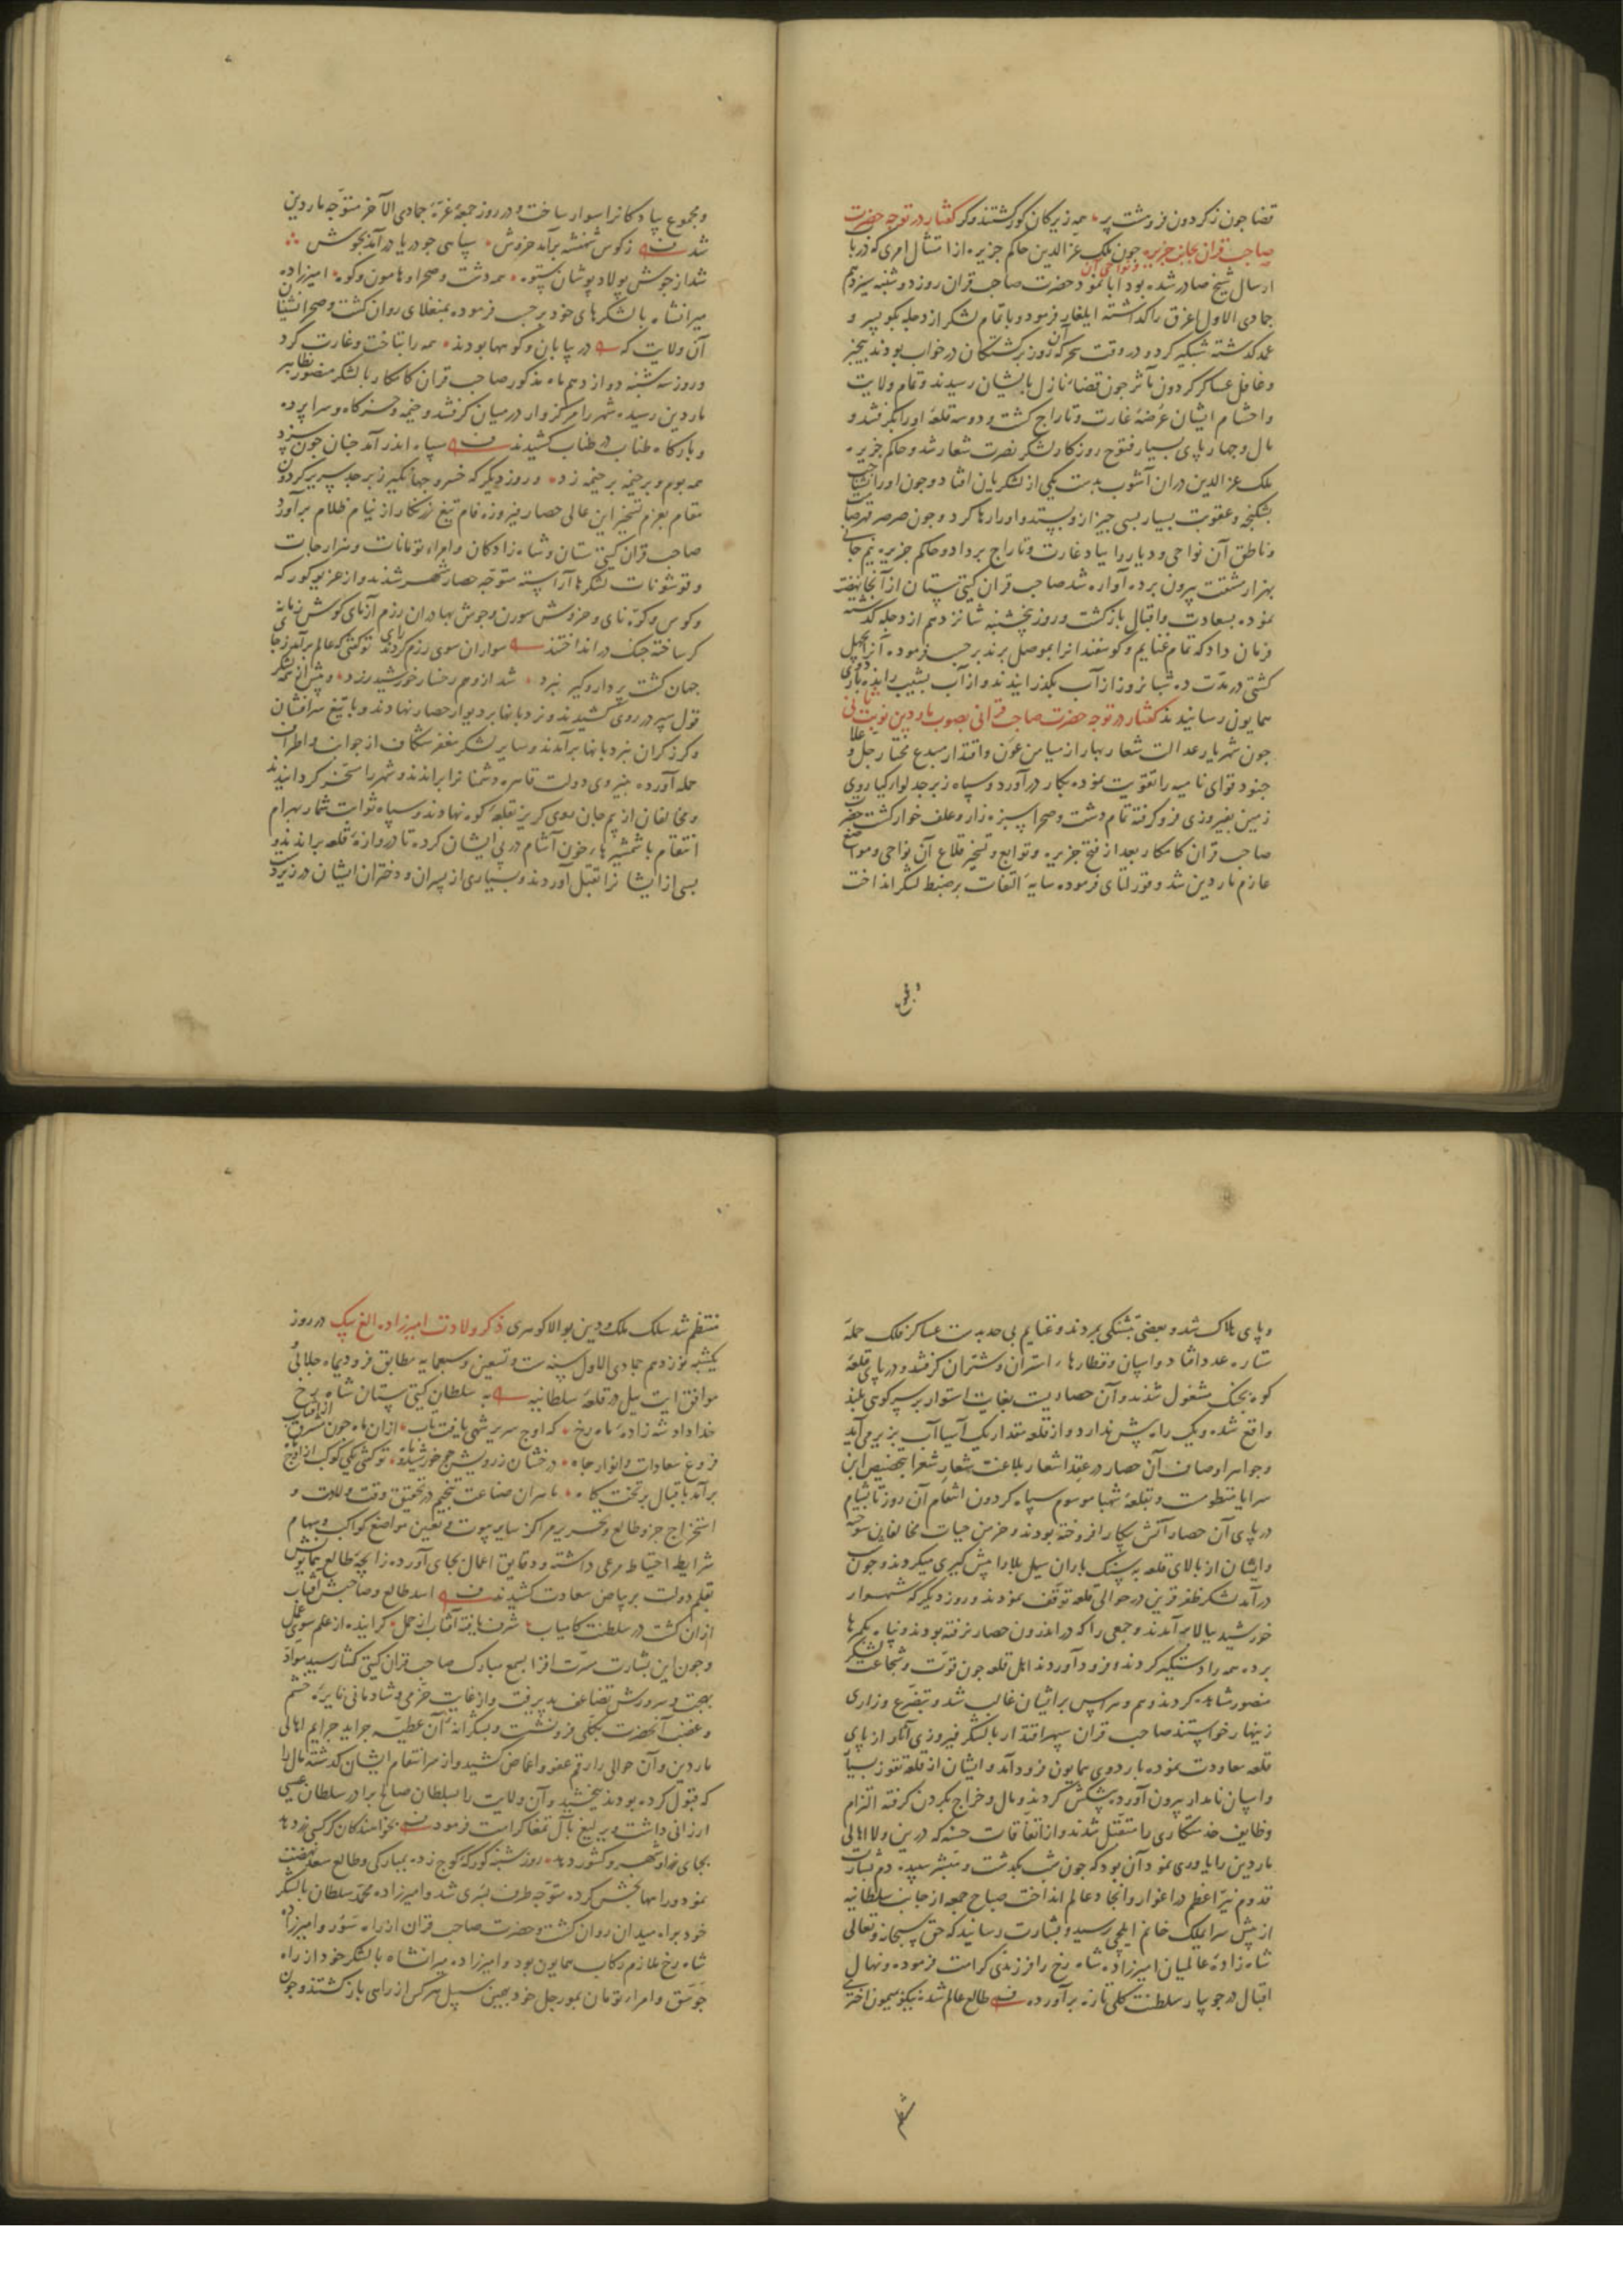 قضا چون ز کردون فروهشت پر * همه زیرکان کور کشتند و کر کفتار در توجه حضرت
صاحب قران بجانب جزیره و نواحی آن چون ملک عز الدین حاکم جزیره از امتثال امری که در باب
ارسال شیخ صادر شده بود ابا نمود حضرت صاحب قران روز دوشنبه سیزدهم
جمادی الاول اغرق را کذاشته ایلغار فرمود و با تمام لشکر از دجله بکو سپر و
عمد کذشته شبکیر کرد و در وقت سحر که آن روز برکشتکان در خواب بودند بیخبر
و غافل عساکر کردون مآثر چون قضاء نازل بایشان رسیدند و تمام ولایت
و احشام ایشان عرضهٔ غارت و تاراج کشت و دو سه قلعهٔ او را بکرفتند و
مال و چهارپای بسیار فتوح روزکار لشکر نصرت شعار شد و حاکم جزیره
ملک عز الدین دران آشوب بدست یکی از لشکریان افتاد و چون او را نشناخت
بشکنجه و عقوبت بسیار بسی چیز از و بستد و او را رها کرد و چون صرصر قهر صامت
و ناطق آن نواحی و دیار را بباد غارت و تاراج برداد و حاکم جزیره نیم جانی
بهزار مشقت بیرون برده آواره شد صاحب قران کیتی ستان از آنجا نهضت
نموده بسعادت و اقبال بازکشت و روز پنجشنبه شانزدهم از دجله کذشته
فرمان داد که تمام غنایم و کوسفندانرا بموصل برند بر حسب فرموده آنرا بچهل
کشتی در مدت ده شبانروز از آب بکذرانیدند و از آب بشیب رانده باردوی
همایون رسانیدند کفتار در توجه حضرت صاحب قرانی بصوب ماردین نوبت ثانی
چون شهریار عدالت شعار بهار از میامن عون و اقتدار مبدع مختار جل و علا
جنود قوای نامیه را تقویت نموده بکار درآورد و سپاه زبرجد لوار کیا روی
زمین بفیروزی فرو کرفته تمام دشت و صحرا سبزه زار و علف خوار کشت حضرت
صاحب قران کامکار بعد از فتح جزیره و توابع و تسخیر قلاع آن نواحی و مواضع
عازم ماردین شد و قورلتای فرموده سایهٔ التفات بر ضبط لشکر انداخت
و مجموع
و مجموع پیادکانرا سوار ساخت و در روز جمعه غرهٔ جمادی الآخر متوجه ماردین
شد ز کوس شهنشه برآمد خروش * سپاهی چو دریا درآمد بجوش
شد از جوش پولادپوشان ستوه * همه دشت و صحرا و هامون و کوه * امیرزاده
میرانشاه با لشکرهای خود بر حسب فرموده بمنغلای روان کشت و صحرانشینان
آن ولایت که در بیابان و کوهها بودند * همه را بتاخت و غارت کرد
و روز سه شنبه دوازدهم ماه مذکور صاحب قران کامکار با لشکر منصور بظاهر
ماردین رسیده شهر را مرکزوار در میان کرفتند و خیمه و خرکاه و سراپرده
و بارکاه طناب در طناب کشیدند سپاه اندر آمد چنان چون سزد
همه بوم و بر خیمه بر خیمه زد * و روز دیکر که خسرو جهانکیر زبرجد سریر کردون
مقام بعزم تسخیر این عالی حصار فیروزه فام تیغ زرنکار از نیام ظلام برآورد
صاحب قران کیتی ستان و شاه زادکان و امراء تومانات و هزارجات
و قوشونات لشکرها آراسته متوجه حصار شهر شدند و از غریو کورکه
و کوس و کره نای و خروش سورن و جوش بهادران رزم آزمای کوش زمانه
کر ساخته جنک درانداختند سواران سوی رزم کردند رای * تو کفتی که عالم برآمد ز جای
جهان کشت پر دار و کیر نبرد * شد از وهم رخسار خورشید زرد * و پیش از همه لشکر
قول سپر در روی کشیدند و نردبانها بر دیوار حصار نهادند و با تیغ سرافشان
و کرز کران بنردبانها برآمدند و سایر لشکر مغفر شکاف از جوانب و اطراف
حمله آورده بنیروی دولت قاهره دشمنانرا براندند و شهر را مسخر کردانیدند
و مخالفان از بیم جان روی کریز بقلعهٔ کوه نهادند و سپاه ثوابت شمار بهرام
انتقام با شمشیرهاء خون آشام در پی ایشان کرده تا دروازهٔ قلعه براندند و
بسی از ایشانرا بقتل آوردند و بسیاری از پسران و دختران ایشان در زیر دست
و پای هلاک شد و بعضی تشنکی بمردند و غنایم بی حد بدست عساکر فلک حمله
ستاره عدد افتاد و اسپان و قطارهاء استران و شتران کرفتند و در پای قلعهٔ
کوه بجنک مشغول شدند و آن حصاریست بغایت استوار بر سر کوهی بلند
واقع شده و یک راه بیش ندارد و از قلعه مقدار یک آسیا آب بزیر می آید
و جواهر اوصاف آن حصار در عقد اشعار بلاغت شعار شعرا بتخصیص ابن
سرایا منظومست و بقلعهٔ شهبا موسوم سپاه کردون انتقام آن روز تا بشام
در پای آن حصار آتش پیکار افروخته بودند و خرمن حیات مخالفان سوخته
و ایشان از بالای قلعه به سنک باران سیل بلا را پیش کیری میکردند و چون شب
درآمد لشکر ظفر قرین در حوالی قلعه توقف نمودند و روز دیکر که شهسوار
خورشید ببالا برآمدند و جمعی را که در اندرون حصار نرفته بودند و پناه بکمرها
برده همه را دستکیر کردند و فرود آوردند اهل قلعه چون قوت و شجاعت لشکر
منصور مشاهده کردند وهم و هراس بر ایشان غالب شد و بتضرع و زاری
زینهار خواستند صاحب قران سپهر اقتدار با لشکر فیروزی آثار از پای
قلعه معاودت نموده باردوی همایون فرود آمد و ایشان از قلعه تقوز بسیار
و اسپان نامدار بیرون آورده پیشکش کردند و مال و خراج بکردن کرفته التزام
وظایف خدمتکاری را متقبل شدند و از اتفاقات حسنه که درین ولا اهالی
ماردین را یاوری نمود آن بود که چون شب بکذشت و مبشر سپیده دم بشارت
قدوم نیر اعظم در اغوار و انجاد عالم انداخت صباح جمعه از جانب سلطانیه
از پیش سرای ملک خانم ایلچی رسید و بشارت رسانید که حق سبحانه و تعالی
شاه زادهٔ عالمیان امیرزاده شاه رخ را فرزندی کرامت فرموده و نهال
اقبال در جویبار سلطنت کلی تازه برآورده طالع عالم شده نیکو بمیمون اختری
منتظم شد سلک ملک و دین بوالا کوهری ذکر ولادت امیرزاده الغ بیک در روز
یکشنبه نوزدهم جمادی الاول سنه ست و تسعین و سبعمایه مطابق فروردیماه جلالی و
موافق ایت ییل در قلعهٔ سلطانیه به سلطان کیتی ستان شاه رخ
خدا داد شه زادهٔ ماه رخ * که اوج سریر شهی یافت تاب * ازان ماه چون مشرق از آفتاب
فروغ سعادات و انوار جاه * درخشان ز رویش چو خورشید و ماه * تو کفتی یکی کوکب از اوج
برآمد باقبال بر تخت کاه * ماهران صناعت تنجیم در تحقیق وقت ولادت و
استخراج جزو طالع و تحریر مراکز سایر بیوت و تعیین مواضع کواکب و سهام
شرایط احتیاط مرعی داشته و دقایق اعمال بجای آورده زایچهٔ طالع همایونش
بقلم دولت بر بیاض سعادت کشیدند اسد طالع و صاحبش آفتاب
ازان کشت در سلطنت کامیاب * شرف یافته آفتاب از حمل * کراینده از علم سوی عمل
و چون این بشارت مسرت افزا بسمع مبارک صاحب قران کیتی کشا رسید مواد
بهجت و سرورش تضاعف پذیرفت و از غایت خرمی و شادمانی نایرهٔ خشم
و غضب آنحضرت بکلی فرونشست و بشکرانهٔ آن عطیه جراید جرایم اهالی
ماردین و آن حوالی را رقم عفو و اغماض کشید و از سر انتقام ایشان کذشته مال را
که قبول کرده بودند ببخشید و آن ولایت را بسلطان صالح برادر سلطان عیسی
ارزانی داشت و یرلیغ بآل تمغا کرامت فرمود بخواهندکان کر کسی زر دهد
بجای زر او شهر و کشور دهد * روز شنبه کورکهٔ کوچ زده بمبارکی و طالع سعد نهضت
نمود و راهها بخش کرده متوجه طرف بشری شد و امیرزاده محمد سلطان با لشکر
خود براه میدان روان کشت و حضرت صاحب قران از راه سور و امیرزاده
شاه رخ ملازم رکاب همایون بود و امیرزاده میرانشاه با لشکر خود از راه
جوسق و امراء تومان بمورچل خود بهمین سبیل هر کس از راهی بازکشتند و چون